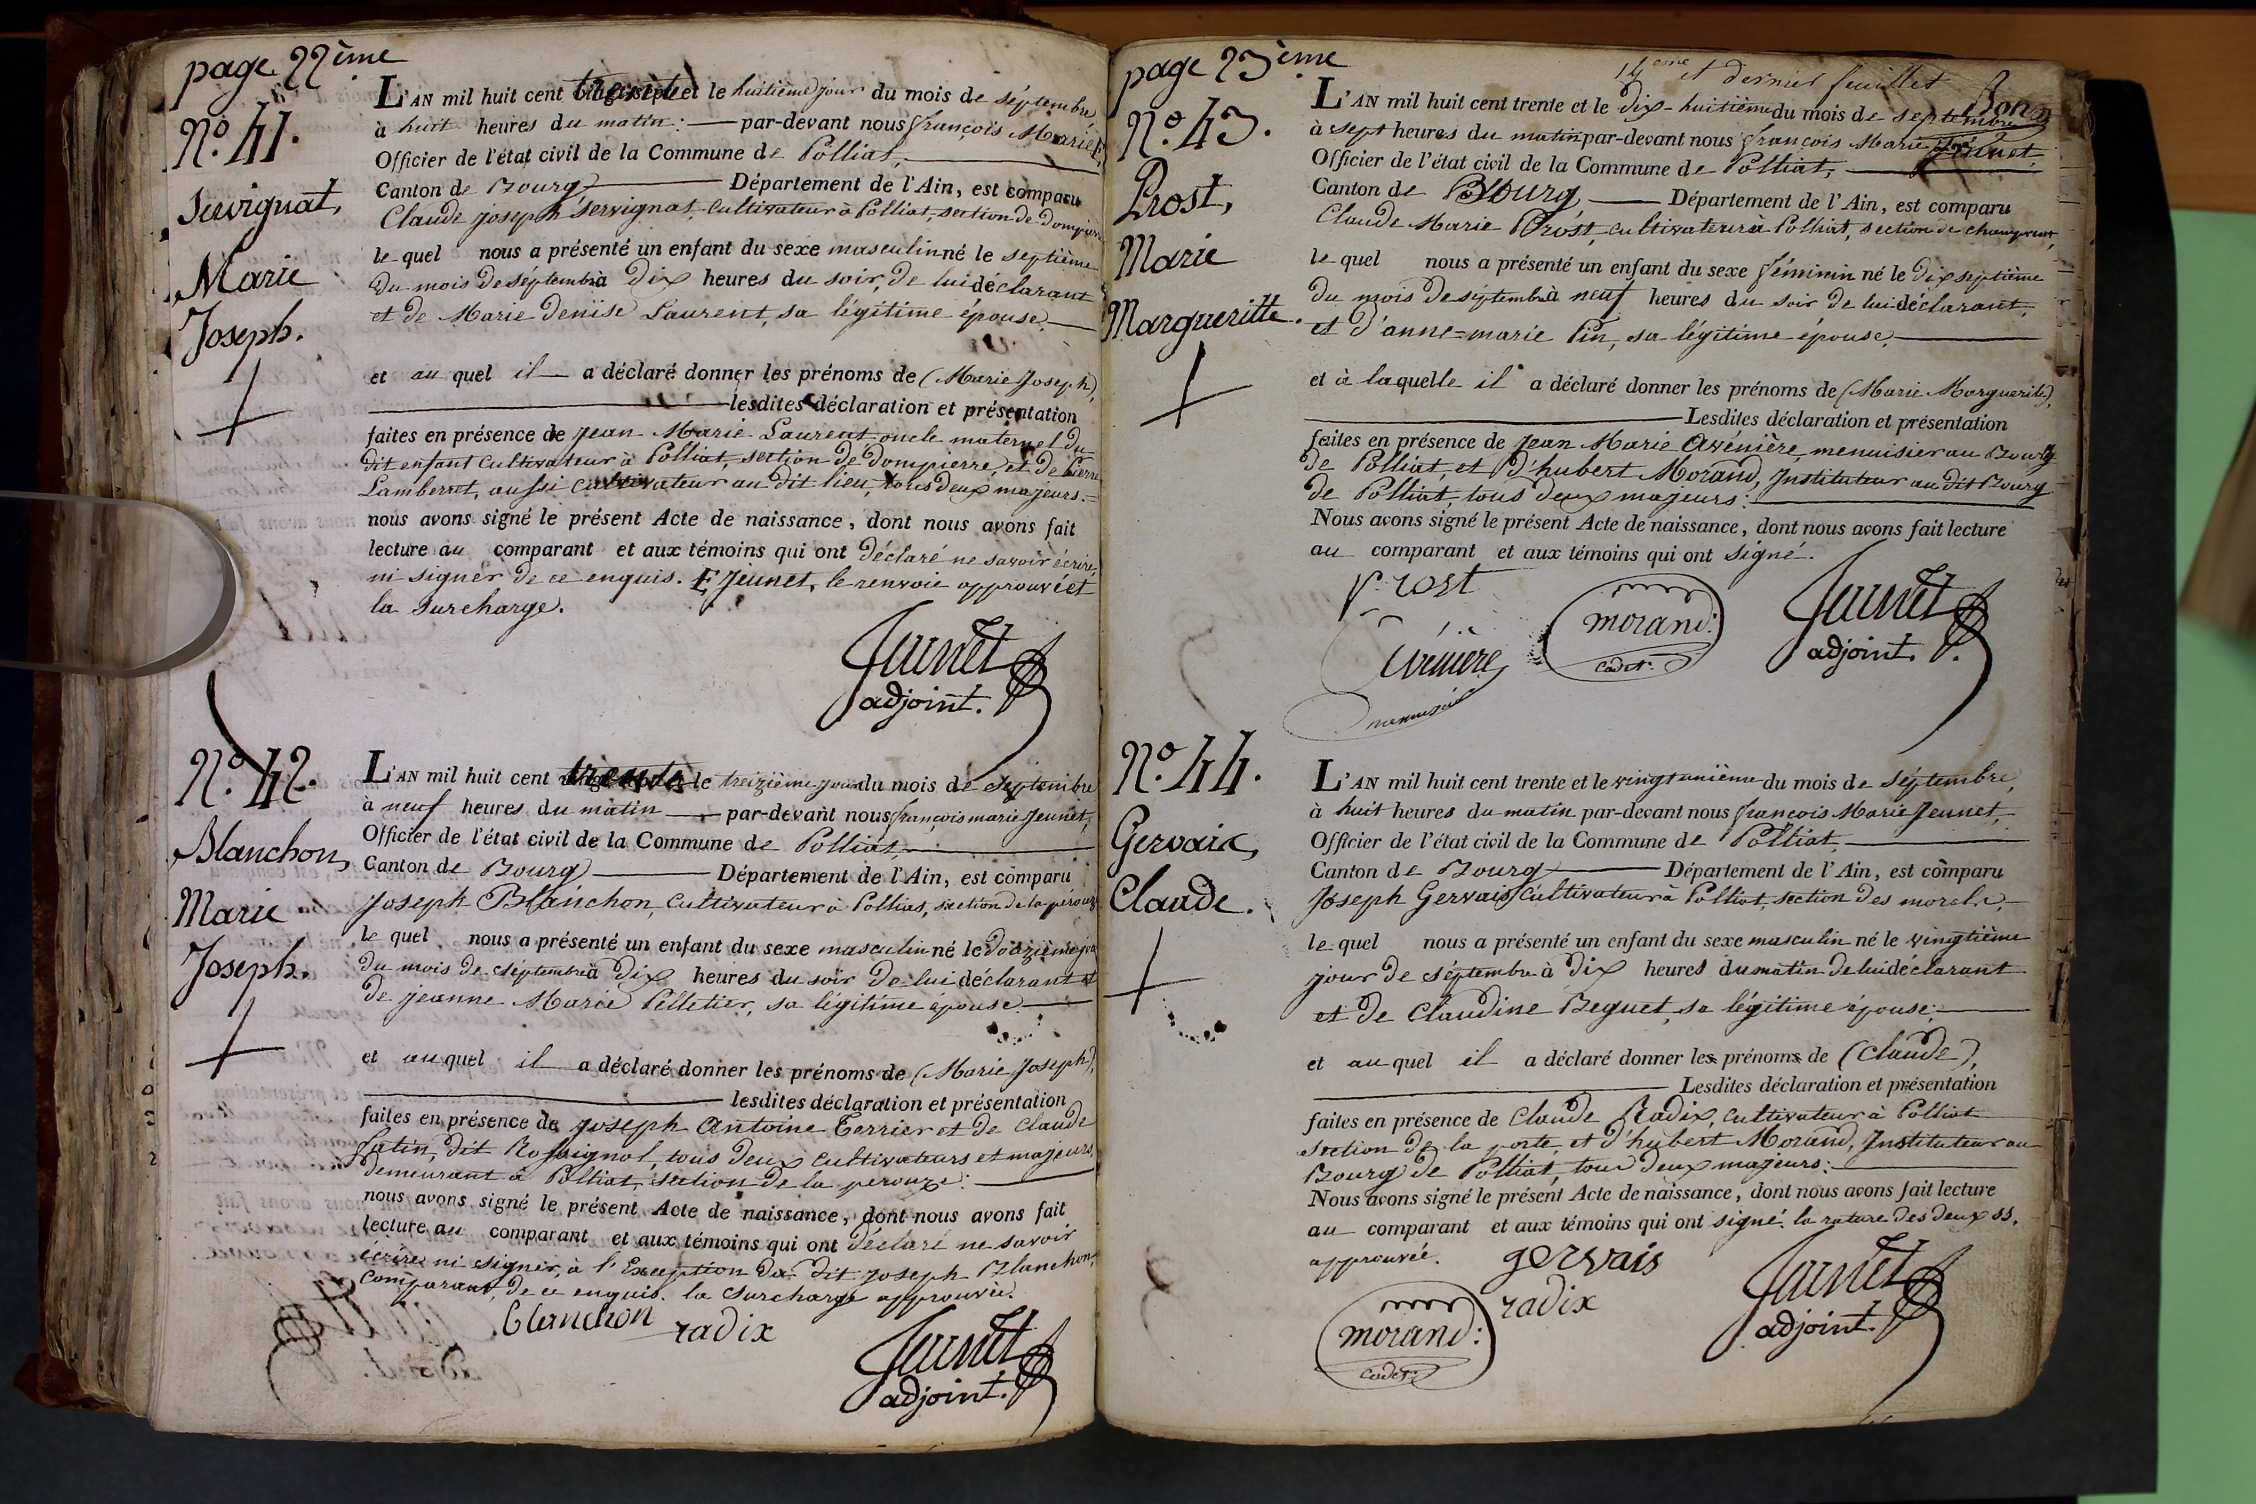 page 22ème
N.º 41.
Servignat,
Marie
Joseph.
L'AN mil huit cent trente et le huitième jour du mois de séptembre
à huit heures du matin: par-devant nous françois Marie E.
Officier de l'état civil de la Commune de Polliat,
Canton de Bourg Département de l'Ain, est comparu
Claude joseph Servignat, cultivateur à Polliat, section de Dompierre
le quel nous a présenté un enfant du sexe masculin né le septième
du mois de séptembre à dix heures du soir, de lui déclarant
et de Marie Denise Laurent, sa légitime épouse.
et au quel il a déclaré donner les prénoms de (Marie Joseph),
lesdites déclaration et présentation
faites en présence de jean Marie Laurent oncle maternel du
dit enfant cultivateur à Polliat, section de dompierre, et de Pierre
Lamberet, aussi cultivateur au dit lieu, tous deux majeurs.
nous avons signé le présent Acte de naissance, dont nous avons fait
lecture au comparant et aux témoins qui ont déclaré ne savoir écrire,
ni signer de ce enquis. E Jeunet, le renvoie approuvé et
la surcharge.
Jeunet
adjoint.
N.º 42.
Blanchon,
Marie
Joseph.
L'AN mil huit cent trente le treizième jour du mois de septembre
à neuf heures du matin par-devant nous françois marie Jeunet,
Officier de l'état civil de la Commune de Polliat,
Canton de Bourg Département de l'Ain, est comparu
Joseph Blanchon, cultivateur à Polliat, section de la pérouze
le quel nous a présenté un enfant du sexe masculin né le douzième jour
du mois de séptembre à dix heures du soir de lui déclarant et
de jeanne Marie Pelletier, sa légitime épouse
et au quel il a déclaré donner les prénoms de (Marie Joseph),
lesdites déclaration et présentation
faites en présence de joseph Antoine Terrier et de Claude
Satin, dit Rossignol, tous deux cultivateurs et majeurs,
demeurant à Polliat, section de la perouze:
nous avons signé le présent Acte de naissance, dont nous avons fait
lecture au comparant et aux témoins qui ont déclaré ne savoir
écrire ni signer, à l'Exception du dit joseph Blanchon,
comparant, de ce enquis. la surcharge approuvée.
blanchon
radix
Jeunet
adjoint.
page 23ème
14eme et dernier feuillet
N.º 43.
Prost,
Marie
Margueritte.
L'AN mil huit cent trente et le dix-huitième du mois de septembre
à sept heures du matin par-devant nous françois Marie Jeunet,
Officier de l'état civil de la Commune de Polliat,
Canton de Bourg Département de l'Ain, est comparu
Claude Marie Prost, cultivateur à Polliat, section de champvent,
le quel nous a présenté un enfant du sexe féminin né le dixseptième
du mois de séptembre à neuf heures du soir de lui déclarant,
et d'anne=marie Pin, sa légitime épouse.
et à laquelle il a déclaré donner les prénoms de (Marie Marguerite),
Lesdites déclaration et présentation
faites en présence de jean Marie Avenière, menuisier au Bourg
de Polliat, et d'hubert Morand, Instituteur au dit Bourg
de Polliat, tous deux majeurs:
Nous avons signé le présent Acte de naissance, dont nous avons fait lecture
au comparant et aux témoins qui ont signé.
p. rost
Aveniere
menuisier
morand:
cadet.
Jeunet
adjoint.
N.º 44.
Gervais,
Claude.
L'AN mil huit cent trente et le vingtunième du mois de séptembre,
à huit heures du matin par-devant nous françois Marie Jeunet,
Officier de l'état civil de la Commune de Polliat,
Canton de Bourg Département de l'Ain, est comparu
Joseph Gervais, cultivateur à Polliat, section des morels,
le quel nous a présenté un enfant du sexe masculin né le vingtième
jour de séptembre à dix heures du matin de lui déclarant
et de Claudine Beguet, sa légitime épouse;
et au quel il a déclaré donner les prénoms de (Claude),
Lesdites déclaration et présentation
faites en présence de Claude Radix, cultivateur à Polliat
section de la porte, et d'hubert Morand, Instituteur au
Bourg de Polliat, tous deux majeurs:
Nous avons signé le présent Acte de naissance, dont nous avons fait lecture
au comparant et aux témoins qui ont signé. la rature des deux ss.
approuvée.
gervais
radix
morand:
cadet.
Jeunet
adjoint.